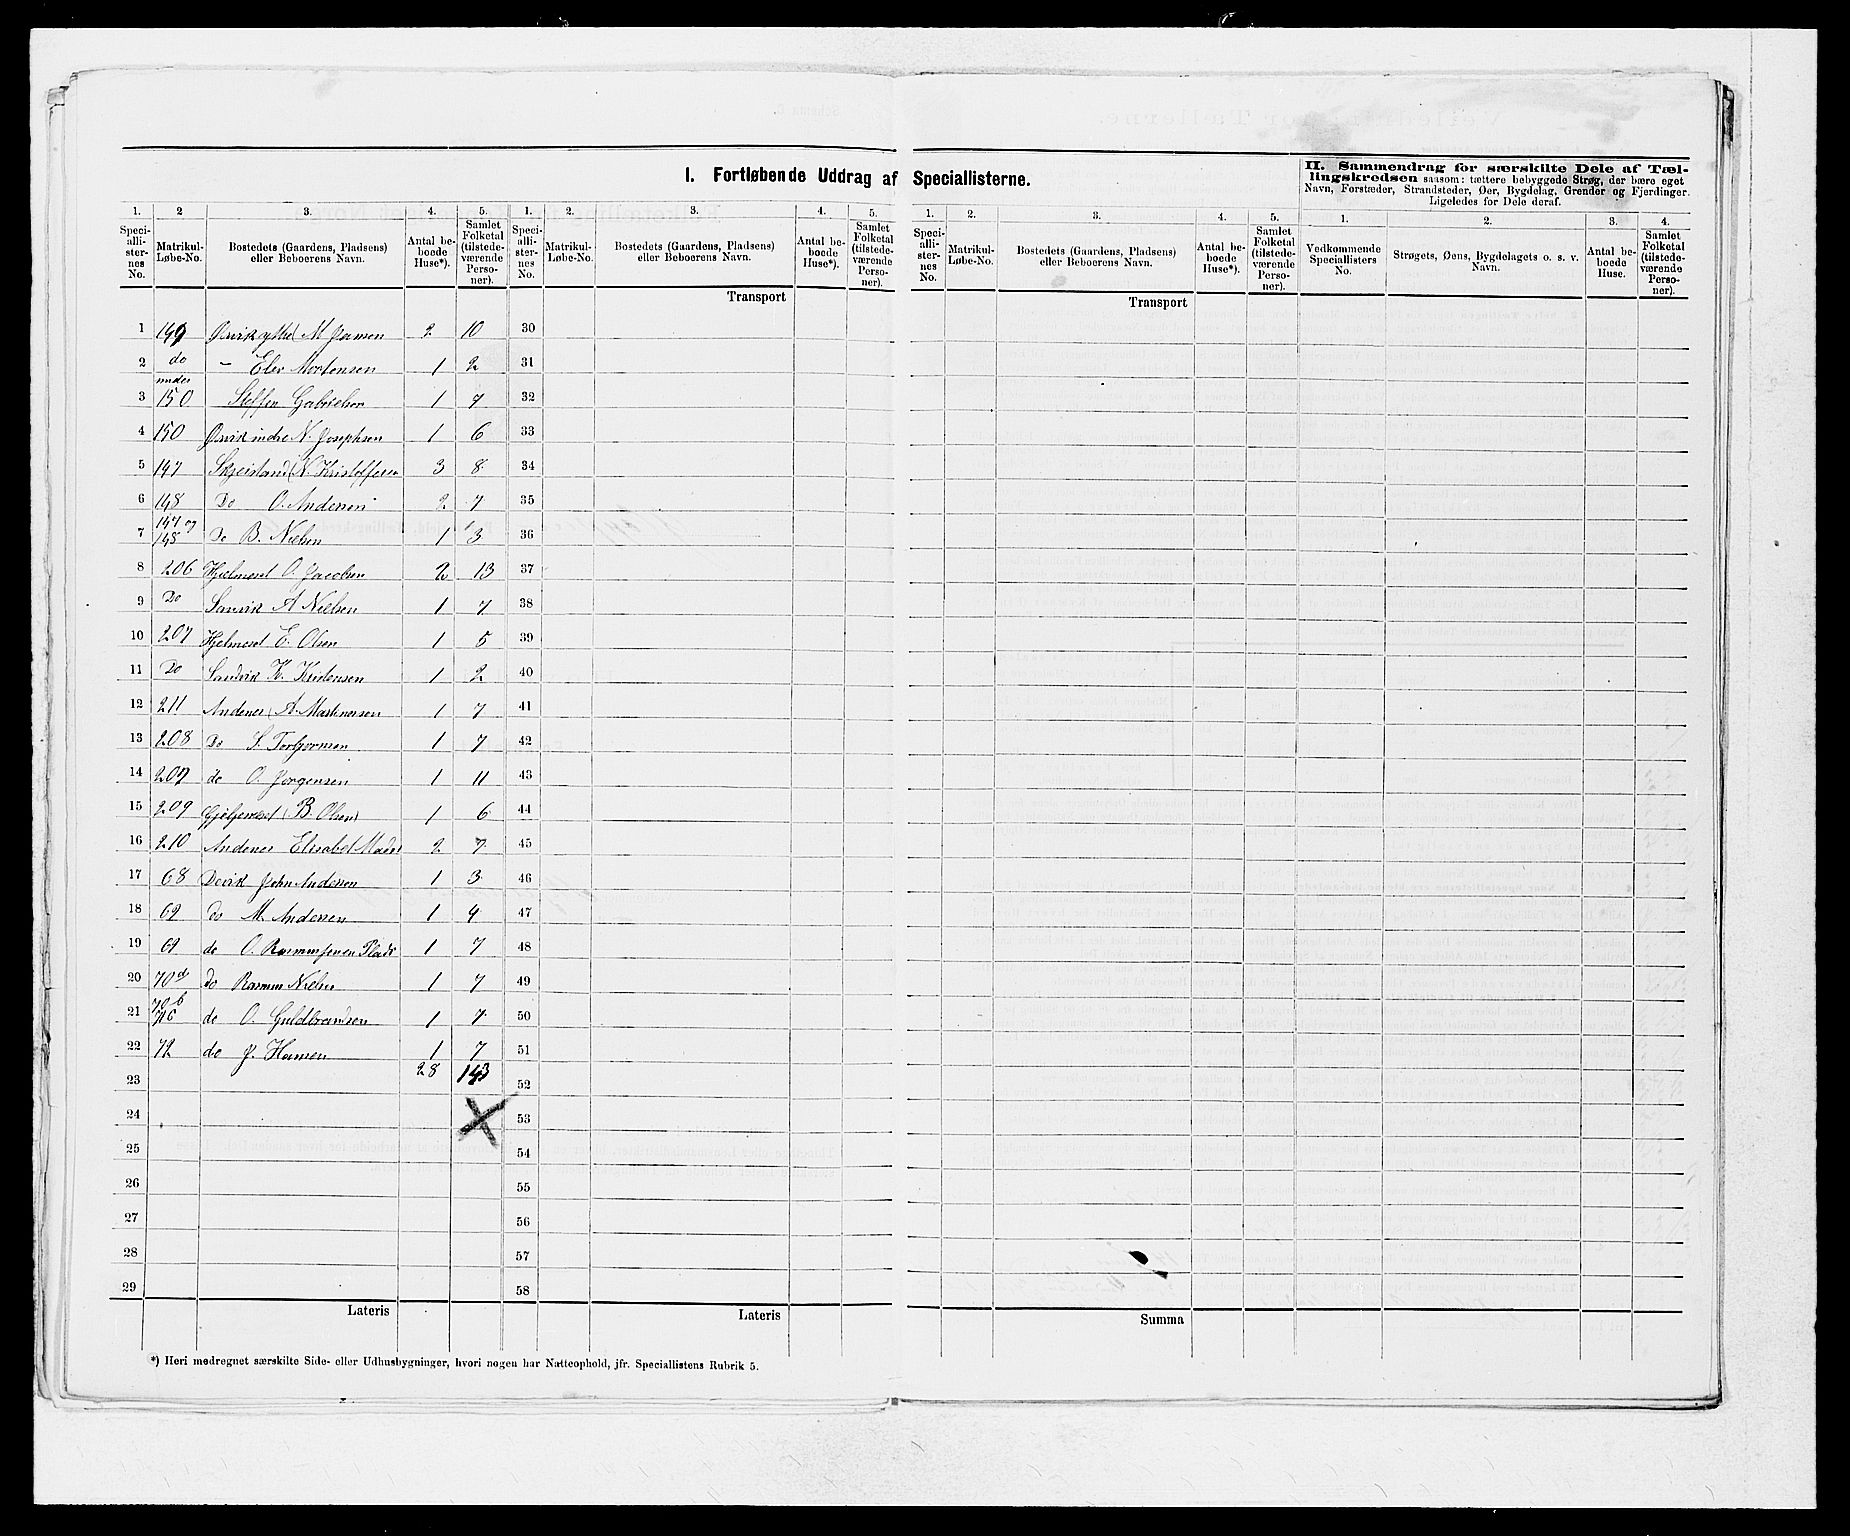 I. Fortløbende Uddrag af Speciallisterne.
II. Sammendrag for særskilte Dele af Tæl-
lingskredsen saasom: tættere bebyggede Strøg, der bære eget
Navn, Forstæder, Strandsteder, Øer, Bygdelag, Grender og Fjerdinger.
Ligeledes for Dele deraf.
1. 2 3. 4. 5. 1. 2. 3. 4. 5. 1. 2. 3. 4. 5. 1. 2. 3. 4.
Speciallisternes No. Matrikul-Løbe-No. Bostedets (Gaardens, Pladsens) eller Beboerens Navn. Antal beboede Huse*). Samlet Folketal (tilstedeværende Personer).
Speciallisternes No. Matrikul-Løbe-No. Bostedets (Gaardens, Pladsens) eller Beboerens Navn. Antal beboede Huse*). Samlet Folketal (tilstedeværende Personer).
Speciallisternes No. Matrikul-Løbe-No. Bostedets (Gaardens, Pladsens) eller Beboerens Navn. Antal beboede Huse*). Samlet Folketal (tilstedeværende Personer).
Vedkommende Speciallisters No. Strøgets, Øens, Bygdelagets o. s. v. Navn. Antal beboede Huse. Samlet Folketal (tilstedeværende Personer).
Transport Transport
1 149 M 2 10 30
2 do – Elen Mortensen 1 2 31
3 under 150 Steffen Gabrielsen 1 7 32
4 150 indre N. Josephsen 1 6 33
5 147 N. Kristoffersen 3 8 34
6 148 Do O. Andersen 2 7 35
7 147 og 148 Do B. Nielsen 1 3 36
8 206 Hjelmeset O. Jacobsen 2 13 37
9 Do Sanvik A Nielsen 1 7 38
10 207 Hjelmeset E. Olsen 1 5 39
11 Do Sandvik K. 1 2 40
12 211 Andenes A. Martinersen 1 7 41
13 208 Do S. Torgormsen 1 7 42
14 207 do O. Jørgensen 1 11 43
15 209 (B. Olsen) 1 6 44
16 210 Andenes Elisabet 2 7 45
17 68 Devik John Andersen 1 3 46
18 62 do M. Andersen 1 4 47
19 69 do O. Rasmussen Plads 1 7 48
20 70d do Rasmus Nielsen 1 7 49
21 70b do O. Guldbrandsen 1 7 50
22 72 do J. Hansen 1 7 51
23 28 143 52
24 53
25 54
26 55
27 56
28 57
29 58
Lateris Lateris Summa
*) Heri medregnet særskilte Side- eller Udhusbygninger, hvori nogen har Natteophold, jfr. Speciallistens Rubrik 5.